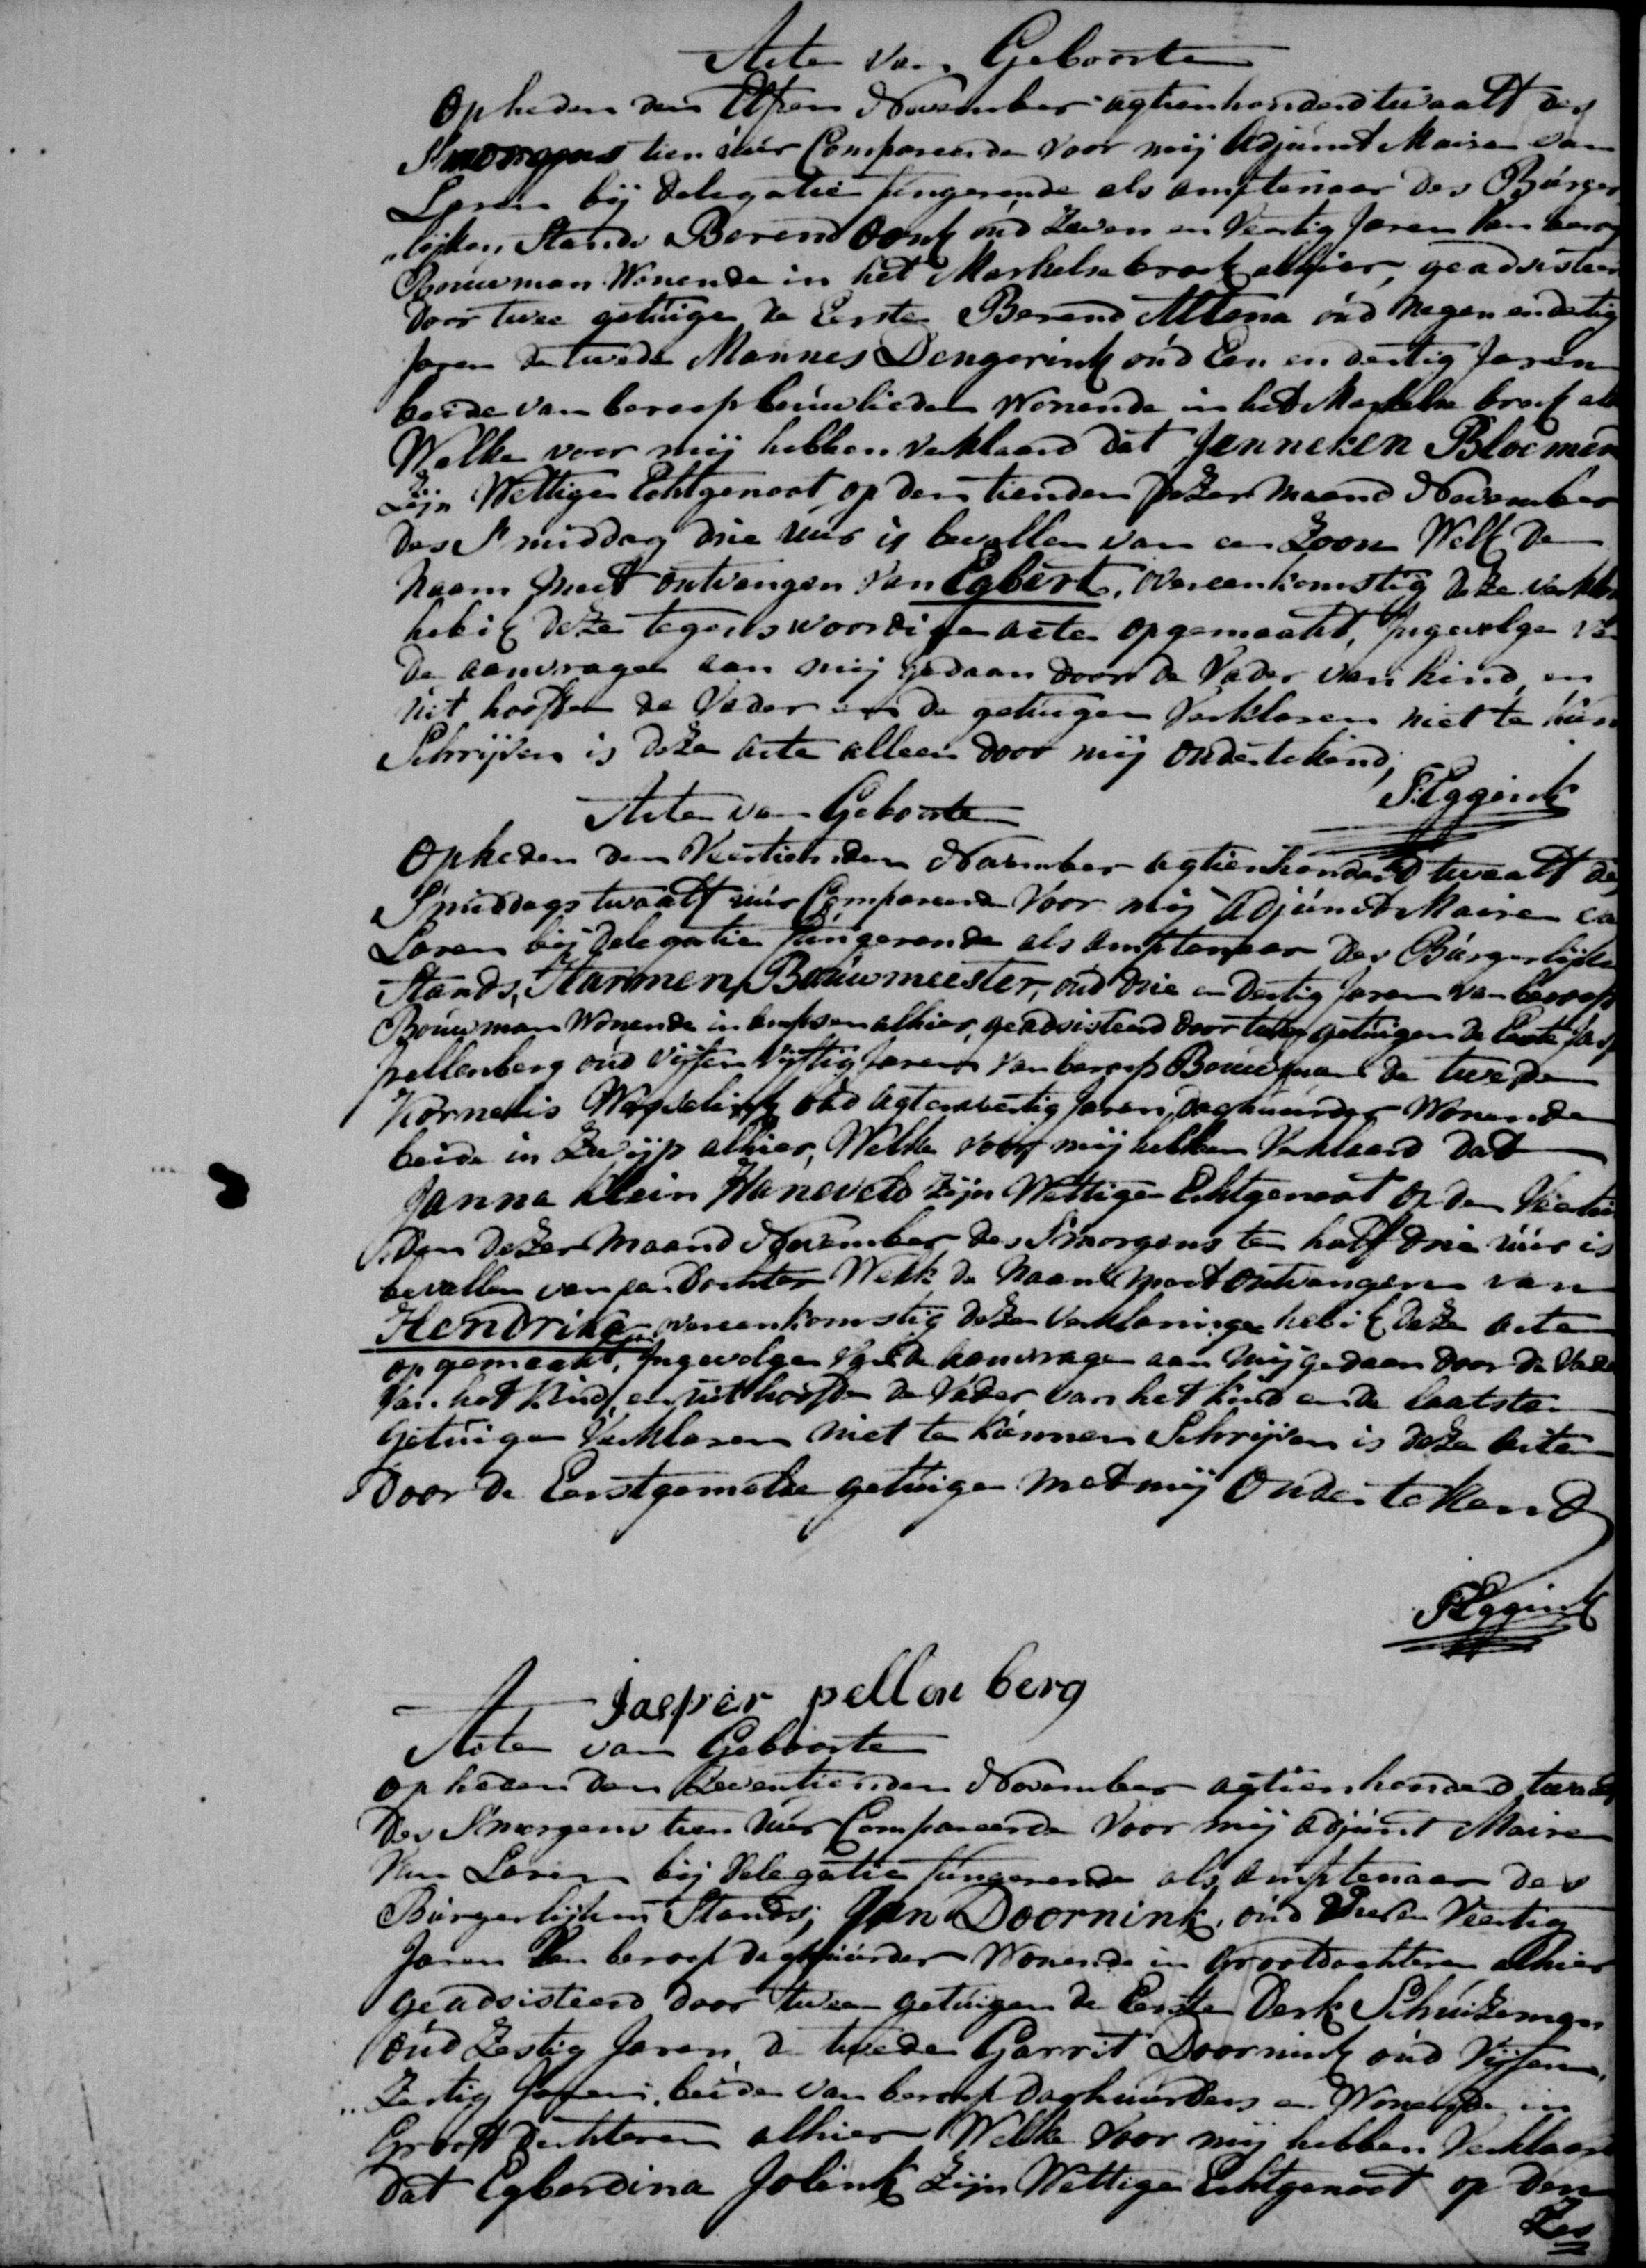 Acte van Geboorte
Op heden den Elfden November agtienhonderd twaalf des
S'morgens tien uúr Compareerde voor mij Adjúnct Maire van
Laren bij delegatie fungerende als amptenaar des Búrger
„lijken Stands Berend Oonk oúd Zeven en Veertig Jaren van beroep
Boúwman Wonende in het Markelse broek alhier, geadsisteerd
door twee getúige de Eerste Berend Altena oúd negen en dertig
Jaren de twede Mannes Dengerink oúd Een en dertig Jaren
beide van beroep boúwlieden Wonende in het Markelse broek
Welke voor mij hebben verklaard dat Jenneken Bloemen
Zijn Wettige Echtgenoot, op den tienden dezer maand November
des S'middag drie úúr is bevallen van een Zoon Welk de
Naam moet ontvangen van Egbert, overeenkomstig deze
heb ik deze tegenswoordige acte opgemaakt, Ingevolge van
de aanvrage aan mij gedaan door de Vader van kind, en
úit hoofde de Vader en de getuigen Verklaren niet te
Schrijven is deze acte alleen door mij ondertekend,
Eggink
Acte van Geboorte
Op heden den Veertienden November agtienhonderd twaalf des
S'middags twaalf úúr Compareerde Voor mij Adjúnct Maire van
Laren bij delegatie fúngerende als amptenaar des Búrgerlijke
Stands, Harmen Boúwmeester, oúd drie en dertig Jaren van beroep
Boúwman Wonende in ampsen alhier, geadsisteerd door twee getúigen de Eerste
pellenberg oúd Vijf en Vijftig Jaren van beroep Boúwman de twede
Kornelis oúd agt en veertig Jaren, daghúurder Wonende
beide in Zwijp alhier, Welke voor mij hebben Verklaard dat
Janna Klein Haneveld Zijn Wettige Echtgenoot op den Veertien
den dezer maand November des S'morgens te half drie úúr is
bevallen van een Dochter Welk de Naam moet ontvangen van
Hendrika overeenkomstig deze verklaringe heb ik deze acte
opgemaakt, Ingevolge van de aanvrage aan mij gedaan door de Vader
van het kind, en úit hoofde de Váder van het kind en de laatste
getúige Verklaren niet te kúnnen Schrijven is deze acte
door de Eerstgemelde getúige met mij Ondertekend
Eggink
Jasper pellenberg
Acte van Geboorte
op heden den Zeventienden November agtienhonderd twaalf
des S'morgens tien úúr Compareerde Voor mij adjúnct Maire
Van Laren bij delegatie fungerende als amptenaar des
Búrgerlijken Stands, Jan Doornink, oúd en Veertig
Jaren Van beroep daghuúrder Wonende in Grootdochteren alhier
geadsisteerd door twee getúigen de Eerste Derk Schuízeman
oúd Zestig Jaren, de twede Garrit Doornink oúd Vijf en
„Zestig Jaren, beide van beroep daghuurders en Wonende in
Groot dochteren alhier Welke voor mij hebben Verklaard
dat Egberdina Jolink Zijn Wettige Echtgenoot op den
Zes